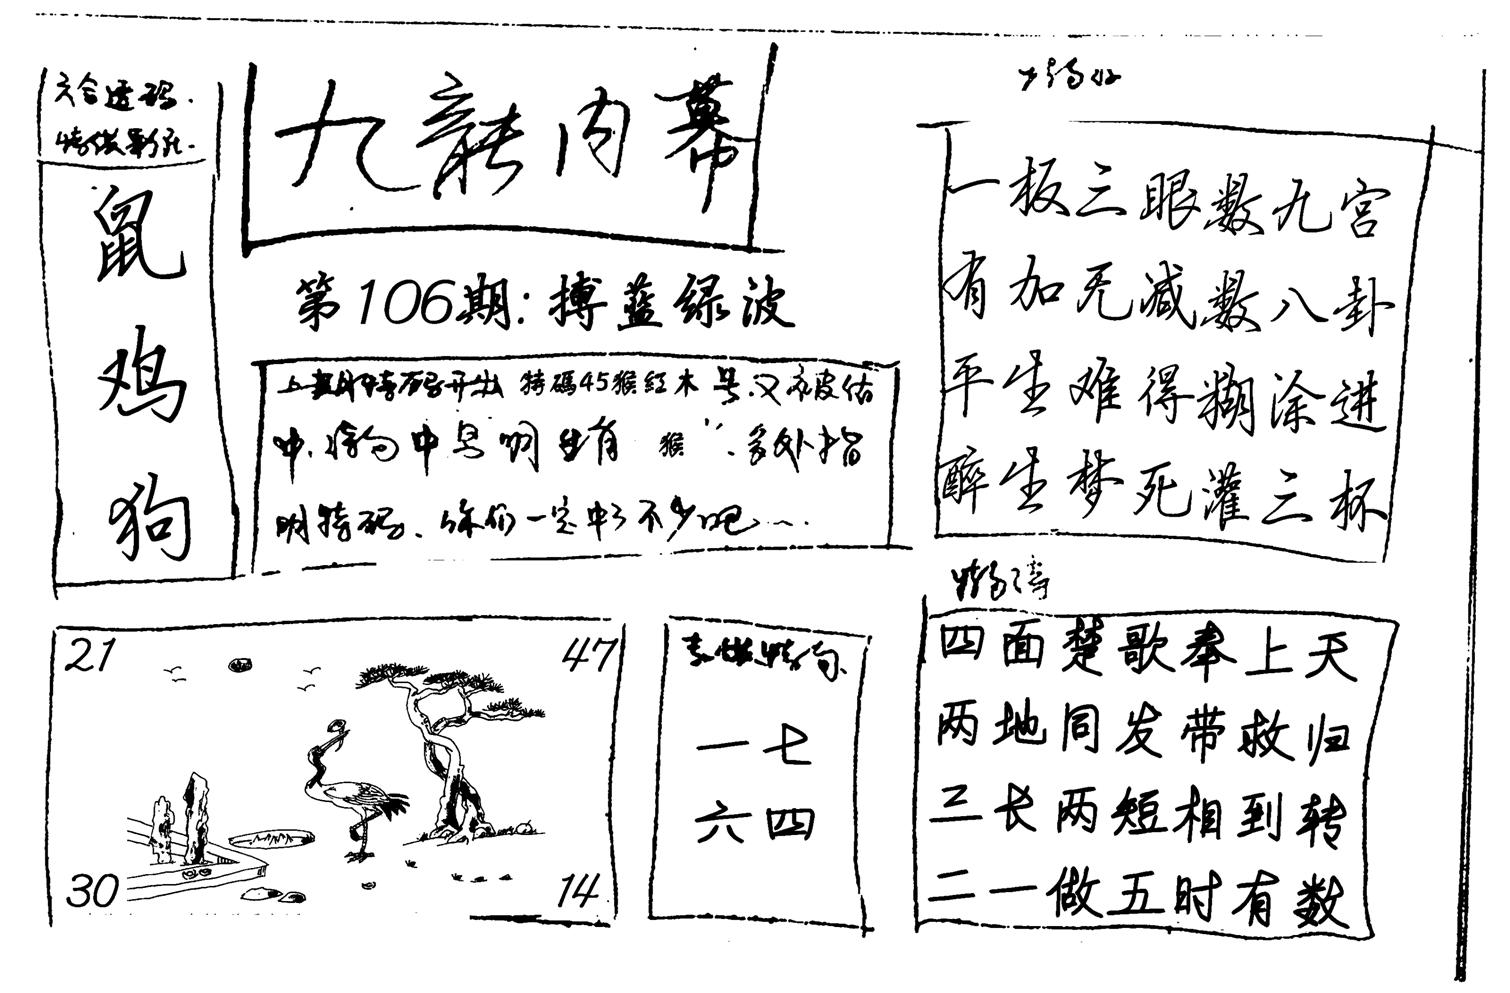 六合透码.
鼠
鸡
狗
九龍内幕
第106期:搏蓝绿波
上期特码开出 特碼45猴红木 号.又被估
中.特句中 明生肖 猴".多处指
明特码.你们一定中了不少吧...
一板三眼数九宫
有加无减数八卦
平生难得糊涂进
醉生梦死灌三杯
四面楚歌奉上天
两地同发带救归
三长两短相到转
二一做五时有数
21
47
30
14
一七
六四